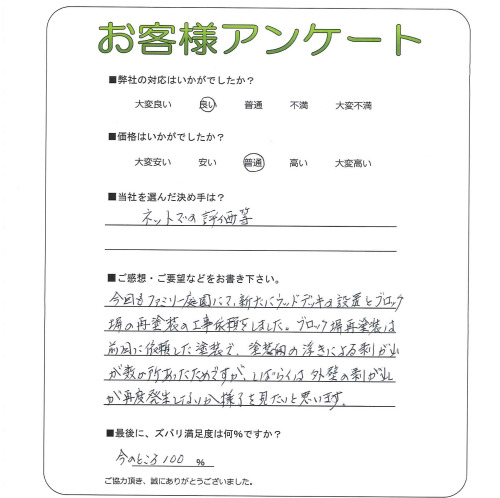 お客様アンケート
■弊社の対応はいかがでしたか？
大変良い 良い 普通 不満 大変不満
■価格はいかがでしたか？
大変安い 安い 普通 高い 大変高い
■当社を選んだ決め手は？
ネットでの評価等
■ご感想・ご要望などをお書き下さい。
今回もファミリー庭園にて、新たにウッドデッキ設置とブロック
塀の再塗装の工事依頼をしました。ブロック塀再塗装は
前回に依頼した塗装で、塗装面の浮きによる剥がれ
が数か所あったためですが、しばらくは外壁の剥がれ
が再度発生しないか様子を見たいと思います。
■最後に、ズバリ満足度は何％ですか？
今のところ100 ％
ご協力頂き、誠にありがとうございました。